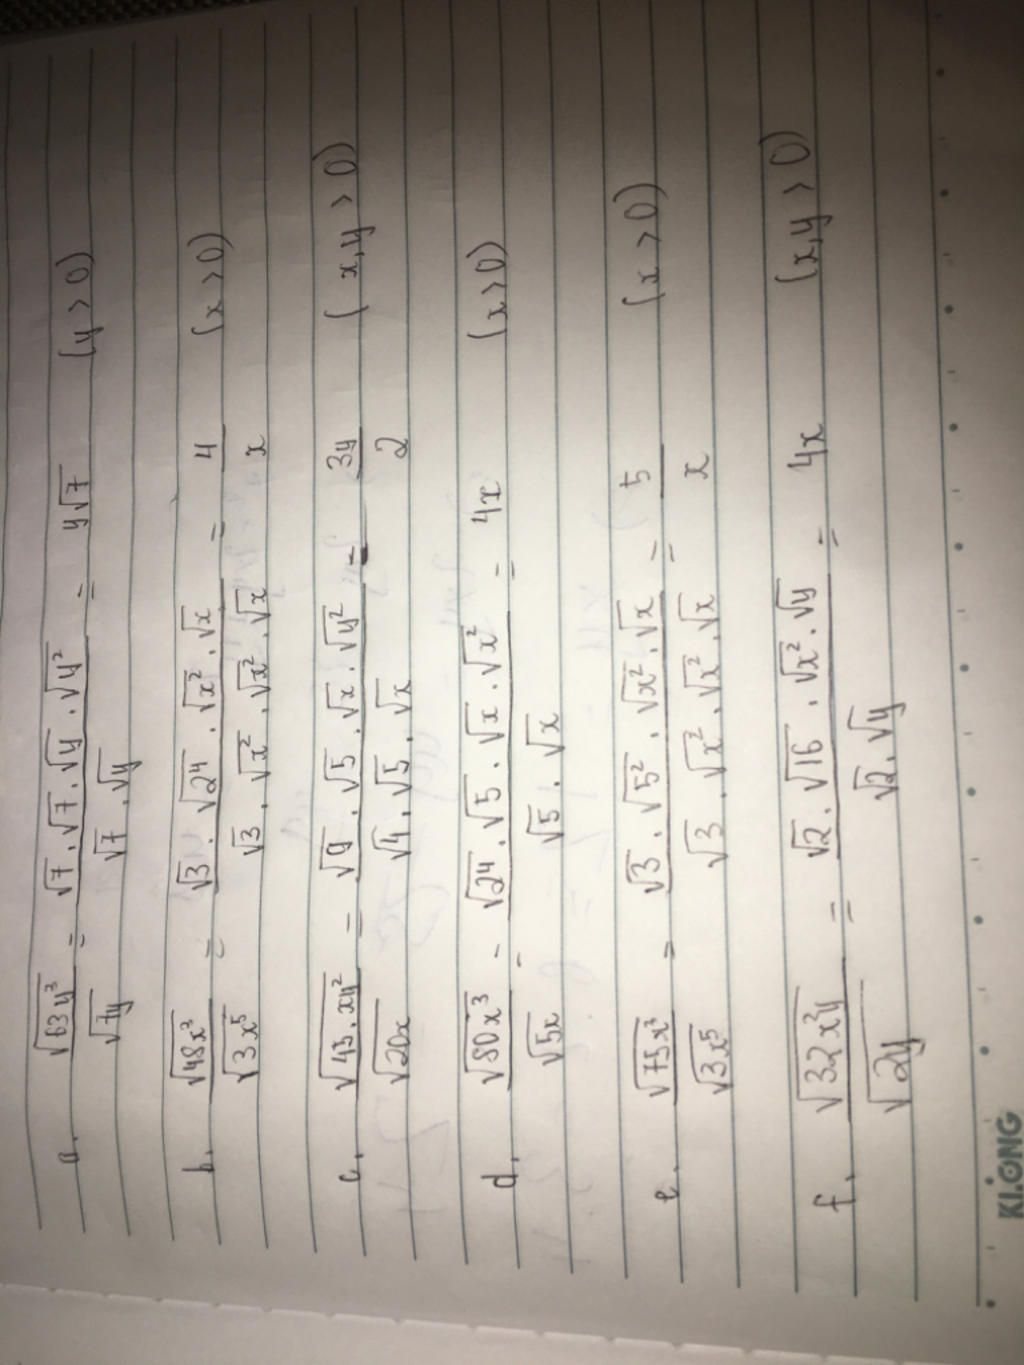 a. √63y³ / √7y = √7 . √7 . √y . √y² / √7 . √y = y√7 (y > 0)
b. √48x³ / √3x⁵ = √3 . √2⁴ . √x² . √x / √3 . √x² . √x² . √x = 4 / x (x > 0)
c. √45.xy² / √20x = √9 . √5 . √x . √y² / √4 . √5 . √x = 3y / 2 (x,y > 0)
d. √80x³ / √5x = √2⁴ . √5 . √x . √x² / √5 . √x = 4x (x > 0)
e. √75x³ / √3x⁵ = √3 . √5² . √x² . √x / √3 . √x² . √x² . √x = 5 / x (x > 0)
f. √32x²y / √2y = √2 . √16 . √x² . √y / √2 . √y = 4x (x,y > 0)
KLONG